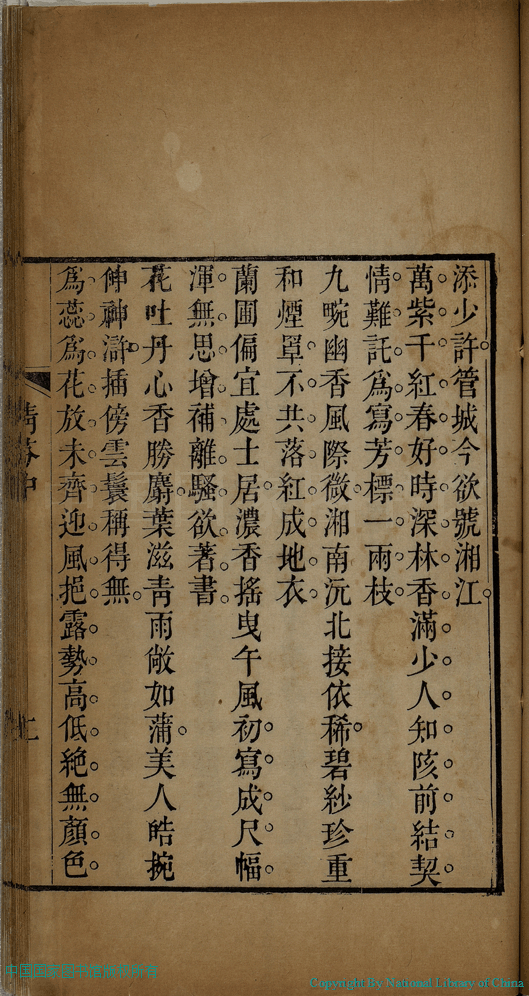 添少許管城今欲號湘江
萬紫千紅春好時深林香滿少人知陔前結契
情難託爲寫芳標一兩枝
九畹幽香風際微湘南沅北接依稀碧紗珍重
和煙罩不共落紅成地衣
蘭圃偏宜處士居濃香搖曳午風初寫成尺幅
渾無思增補離騷欲著書
花吐丹心香勝麝葉滋靑雨敞如蒲美人皓捥
伸神滸插傍雲鬟稱得無
爲蕊爲花放未齊迎風挹露勢高低絶無顏色
Copyright By National Library of China